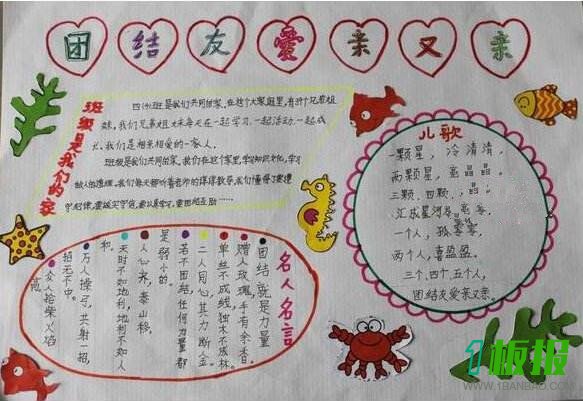 团结友爱亲又亲
班级是我们的家
四(4)班是我们共同的家,在这个大家庭里,有39个兄弟姐
妹,我们兄弟姐妹每天在一起学习,一起活动,一起成
长,我们是相亲相爱的一家人。
班级是我们共同的家,我们在这个家里,学习知识本领,学习
做人的道理,我们每天聆听着老师的谆谆教导,我们懂得了要遵
守纪律,
儿歌
一颗星,冷清清,
两颗星,亮晶晶。
三颗、四颗
汇成星河
一个人,孤零零,
两个人,喜盈盈。
三个,四个,五个人,
团结友爱亲又亲。
名人名言
团结就是力量
赠人玫瑰,手有余香
单丝不成线,独木不成林。
二人同心,其力断金
若不团结,任何力量都
是弱小的。
人心齐,泰山移。
天时不如地利,地利不如人
和。
万人操弓,共射一招,
招无不中。
众人拾柴火焰
高
1板报
WWW.1BANBAO.COM